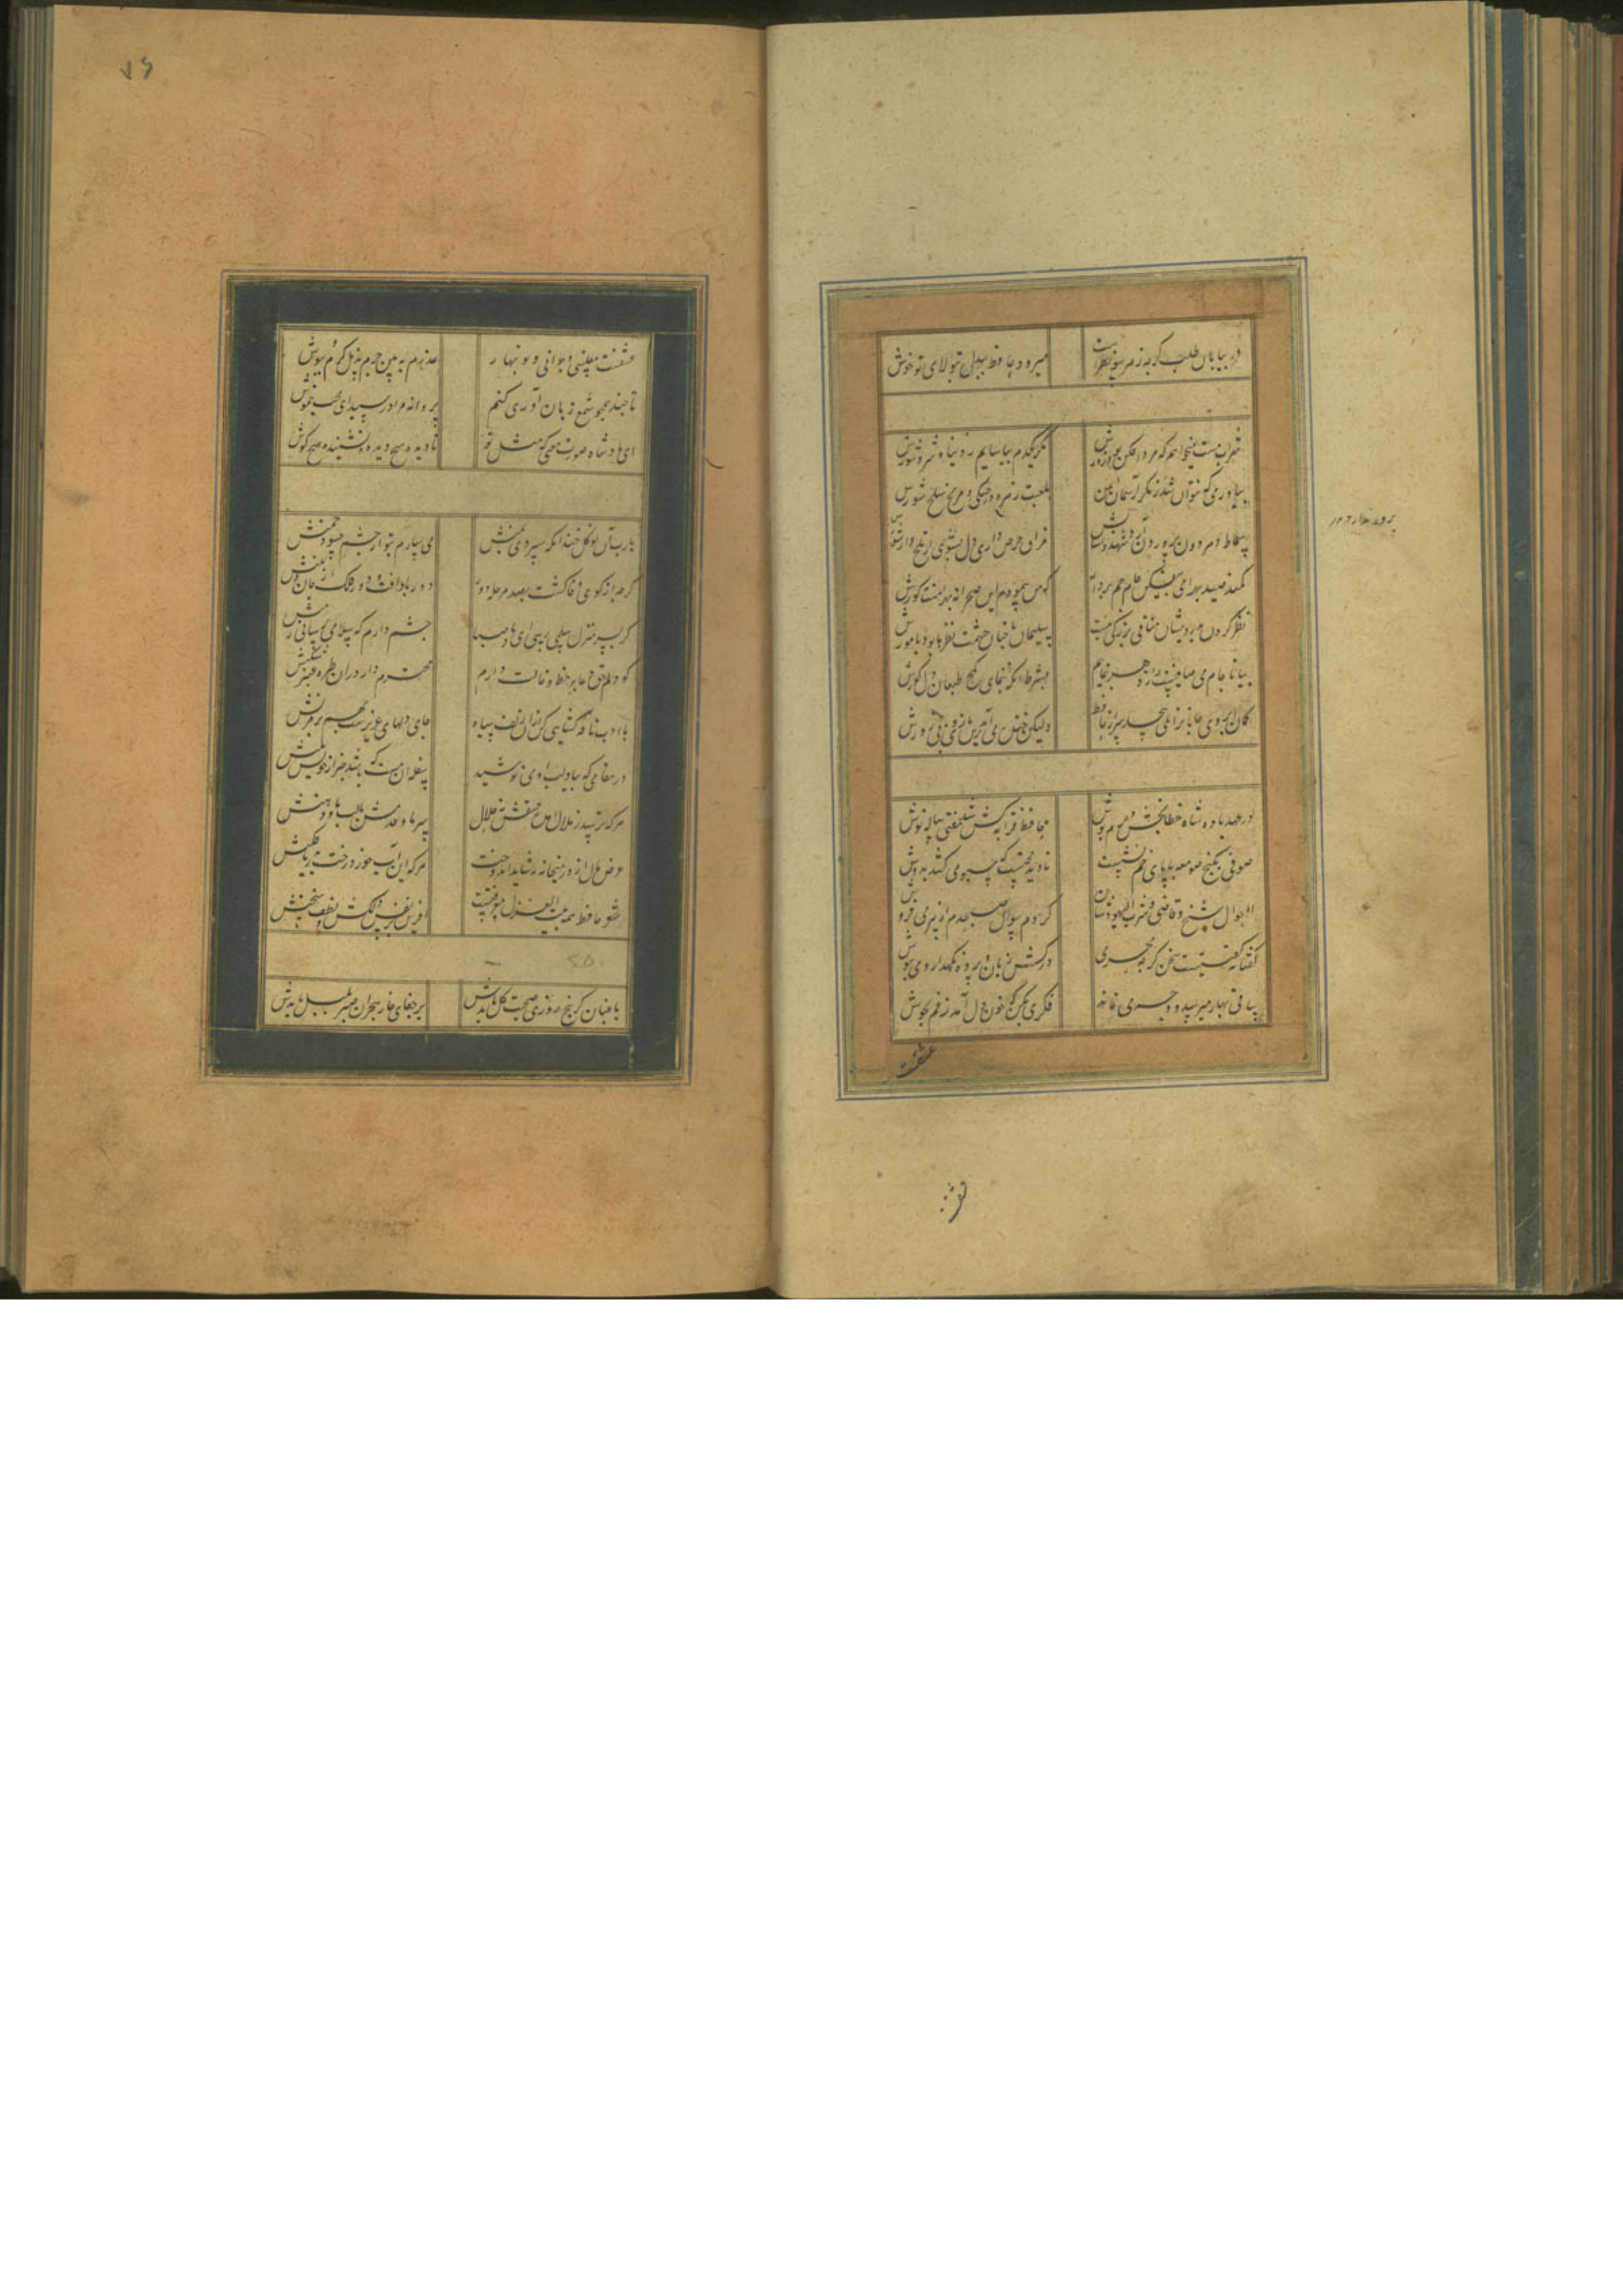 در بیابان طلب گرچه ز هر سو خطریست
میرود حافظ بیدل بتولای تو خوش
شراب مست میخواهم که مرد افکن بود زورش
مگر یکدم بیاسایم ز دنیا و شر و شورش
بیاور می که نتوان شد ز مکر آسمان ایمن
بلعب زهره چنگی و مریخ سلحشورش
سماط دهر دون پرور ندارد شهد آسایش
مذاق حرص و آز ای دل بشوی از تلخ و از شورش
کمند صید بهرامی بیفکن جام جم بردار
که من پیمودم این صحرا نه بهرامست نه گورش
نظر کردن بدرویشان منافی بزرگی نیست
سلیمان با چنان حشمت نظرها بود با مورش
بیا تا جام می صافیت راز دهر بنمایم
بشرط آنکه ننمایی بکج طبعان دل کورش
کمان ابروی جانان نمی پیچد سر از حافظ
ولیکن خنده می آید بدین بازوی بی زورش
در عهد پادشاه خطابخش جرم پوش
حافظ قرابه کش شد و مفتی پیاله نوش
صوفی ز کنج صومعه با پای خم نشست
تا دید محتسب که سبو می کشد بدوش
احوال شیخ و قاضی و شرب الیهودشان
کردم سوال صبحدم از پیر می فروش
گفتا نه گفتنیست سخن گرچه محرمی
درکش زبان و پرده نگهدار و می بنوش
ساقی بهار میرسد و وجه می نماند
فکری بکن که خون دل آمد ز غم بجوش
عشقست
۷۶
عشقست و مفلسی و جوانی و نوبهار
عذرم پذیر و جرم بذیل کرم بپوش
تا چند همچو شمع زبان آوری کنم
پروانه مراد رسید ای محب خموش
ای پادشاه صورت و معنی که مثل تو
نادیده هیچ دیده و نشنیده هیچ گوش
یارب آن نوگل خندان که سپردی بمنش
می سپارم بتو از چشم حسود چمنش
گرچه از کوی وفا گشت بصد مرحله دور
دور باد آفت دور فلک از جان و تنش
گر بسر منزل سلمی رسی ای باد صبا
چشم دارم که سلامی برسانی ز منش
کو دلم حق وفا با خط و خالت دارم
محترم دار در آن طره عنبر شکنش
بادب نافه گشایی کن از آن زلف سیاه
جای دلهای عزیزست بهم بر مزنش
در مقامی که بیاد لب او می نوشند
سفله آن مست که باشد خبر از خویشتنش
هر که ترسد ز ملال انده عشقش نه حلال
سر ما و قدمش یا لب ما و دهنش
عرض و مال از در میخانه نشاید اندوخت
هر که این آب خورد رخت بدریا فکنش
شعر حافظ همه بیت الغزل معرفتست
آفرین بر نفس دلکش و لطف سخنش
۲۵۰
باغبان گر پنج روزی صحبت گل بایدش
بر جفای خار هجران صبر بلبل بایدش